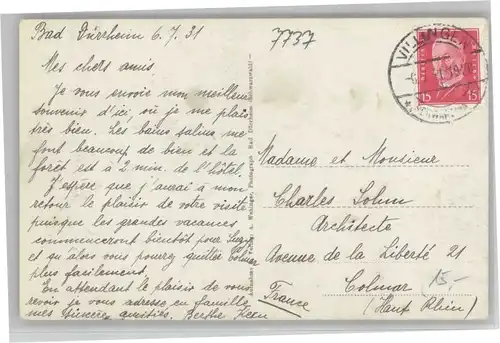 Bad Dürrheim 6.7.31
Mes chers amis.
Je vous envoie mon meilleur
souvenir d'ici, où je me plais
très bien. Les bains salins me
font beaucoup de bien et la
forêt est à 2 min. de l'hôtel.
J'espère que j'aurai à mon
retour le plaisir de votre visite
puisque les grandes vacances
commenceront bientôt pour
et qu'alors vous pourrez quitter Colmar
plus facilement.
En attendant le plaisir de vous
revoir je vous adresse en famille
mes sincères amitiés. Berthe Kern
7737
VILLINGEN
15 15
Madame et Monsieur
Charles Sohm
Architecte
Avenue de la Liberté 21
Colmar
France (Haut Rhin)
15,-